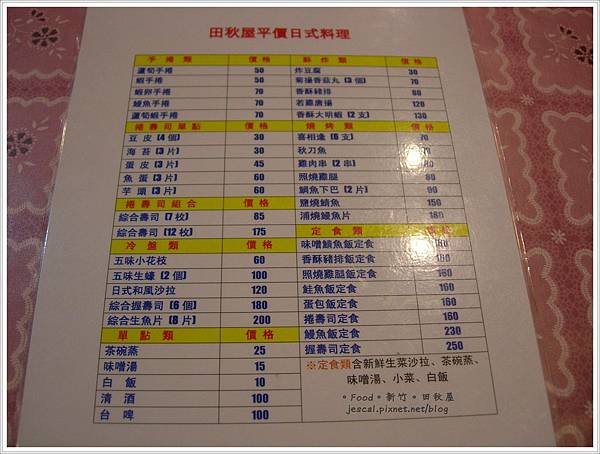 田秋屋平價日式料理
手捲類 價格
蘆筍手捲 50
蝦手捲 50
蝦卵手捲 70
鰻魚手捲 70
蘆筍蝦手捲 70
捲壽司單點 價格
豆皮 (4個) 30
海苔 (3片) 30
蛋皮 (3片) 45
魚蛋 (3片) 60
芋頭 (3片) 60
捲壽司組合 價格
綜合壽司 (7枚) 85
綜合壽司 (12枚) 175
冷盤類 價格
五味小花枝 60
五味生蠔 (2個) 100
日式和風沙拉 120
綜合握壽司 (6個) 180
綜合生魚片 (8片) 200
單點類 價格
茶碗蒸 25
味噌湯 15
白飯 10
清酒 100
台啤 100
酥炸類 價格
炸豆腐 30
菊揚香菇丸 (3個) 70
香酥豬排 80
若雞唐揚 120
香酥大明蝦 (2支) 130
燒烤類 價格
喜相逢 (6支) 70
秋刀魚 70
雞肉串 (2串)
照燒雞腿 80
鯛魚下巴 (2片) 90
鹽燒鯖魚 150
蒲燒鰻魚片 180
定食類
味噌鯖魚飯定食 160
香酥豬排飯定食 160
照燒雞腿飯定食 160
鮭魚飯定食 160
蛋包飯定食 160
捲壽司定食 160
鰻魚飯定食 230
握壽司定食 250
※定食類含新鮮生菜沙拉、茶碗蒸、
味噌湯、小菜、白飯
。Food。新竹。田秋屋
jescal.pixnet.net/blog